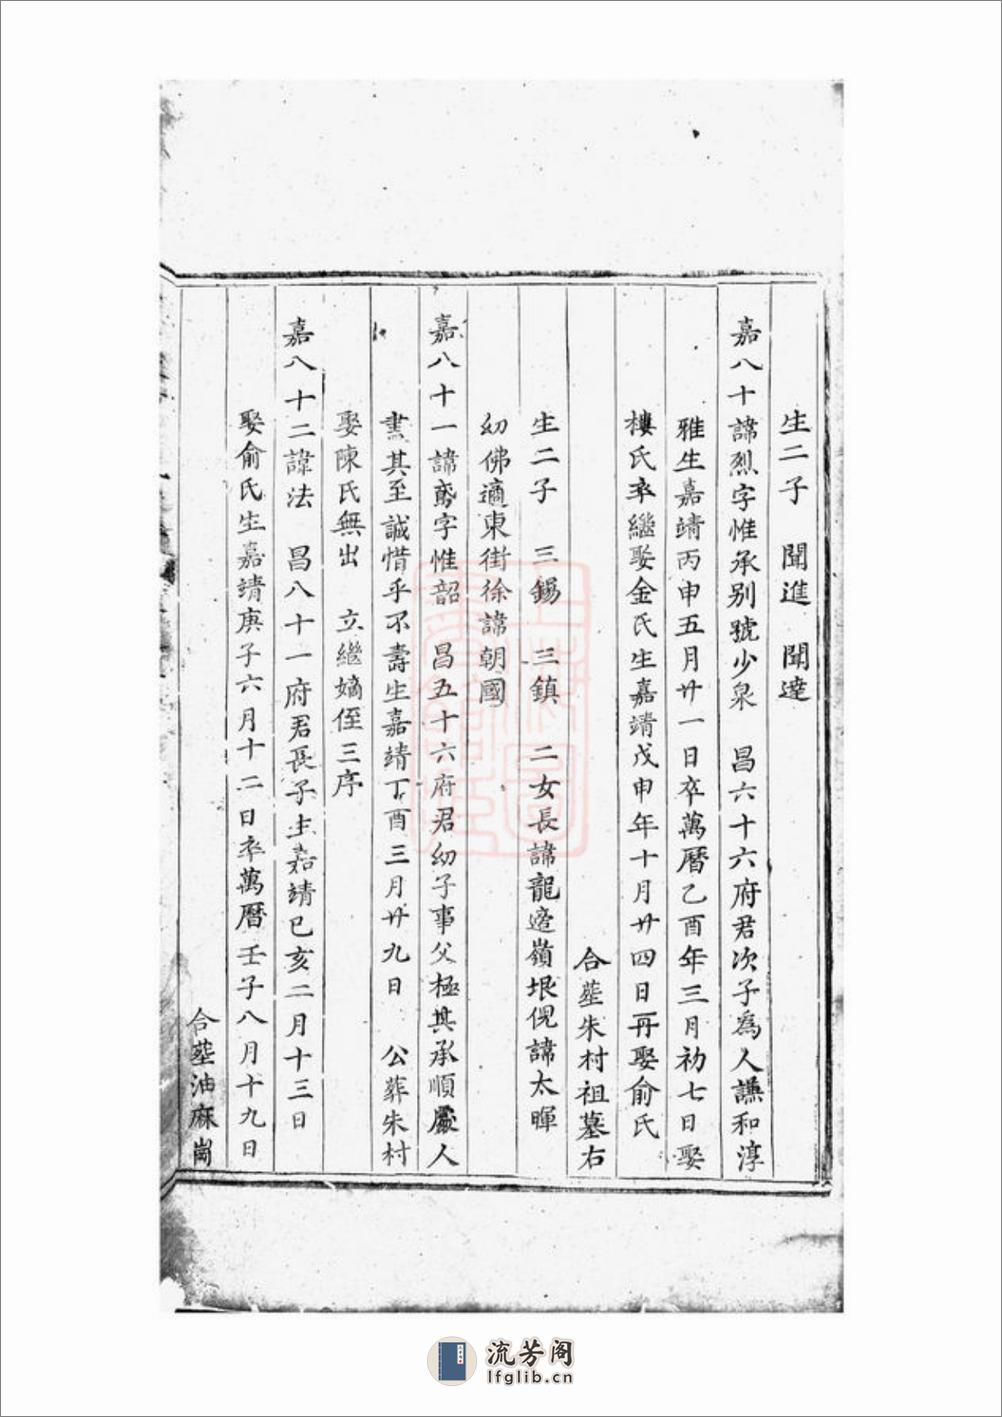 生二子　聞進　聞達
嘉八十諱烈字惟承别號少泉　昌六十六府君次子為人謙和淳
雅生嘉靖丙申五月廿一日卒萬曆乙酉年三月初七日娶
樓氏卒繼娶金氏生嘉靖戊申年十月廿四日再娶俞氏
合塟朱村祖墓右
生二子　三錫　三鎮　二女長諱龍邊嶺垠倪諱太暉
幼佛適東街徐諱朝國
嘉八十一諱鸞字惟韶　昌五十六府君幼子事父極其承順處人
盡其至誠惜乎不壽生嘉靖丁酉三月廿九日　公葬朱村
娶陳氏無出　立繼嫡侄三序
嘉八十二諱法　昌八十一府君長子生嘉靖已亥二月十三日
娶俞氏生嘉靖庚子六月十二日卒萬曆壬子八月十九日
合塟油麻崗
流芳阁
lfglib.cn